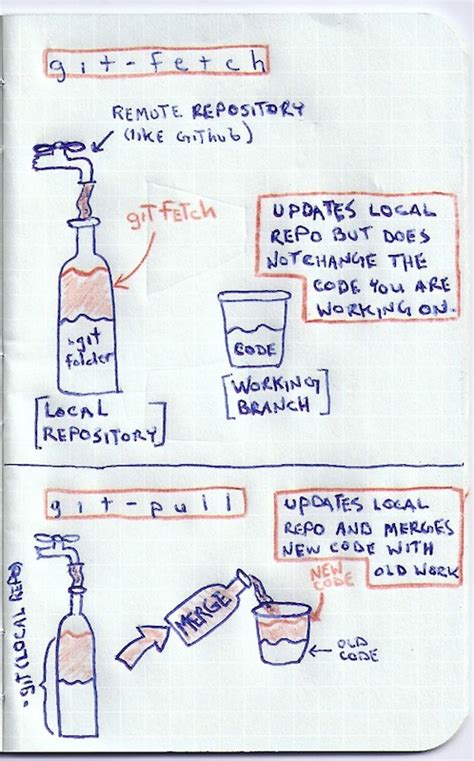 git-fetch
REMOTE REPOSITORY
(LIKE GITHUB)
GIT FETCH
UPDATES LOCAL
REPO BUT DOES
NOT CHANGE THE
CODE YOU ARE
WORKING ON.
.git
folder
CODE
[LOCAL
REPOSITORY]
[WORKING
BRANCH]
git-pull
UPDATES LOCAL
REPO AND MERGES
NEW CODE WITH
OLD WORK
NEW
CODE
MERGE
OLD
CODE
.git (LOCAL REPO)